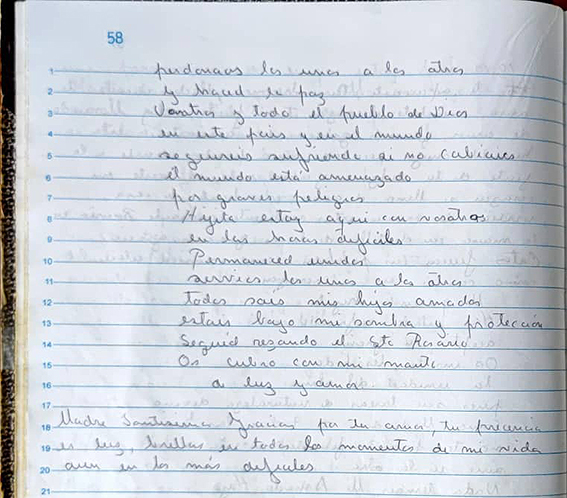 58
1 perdonaos los unos a los otros
2 y haced la paz
3 Vosotros y todo el pueblo de Dios
4 en este pais y en el mundo
5 seguireis sufriendo si no
6 el mundo está amenazado
7 por graves peligros
8 Hijita estoy aqui con vosotros
9 en las horas dificiles
10 Permaneced unidos
11 servios los unos a los otros
12 todos sois mis hijos amados
13 estais bajo mi sombra y protección
14 Seguid rezando el Sto Rosario
15 Os cubro con mi manto
16 de luz y amor
17
18 Madre Santisima Gracias por tu amor, tu presencia
19 es luz, en todos los momentos de mi vida
20 aun en los mas dificiles
21